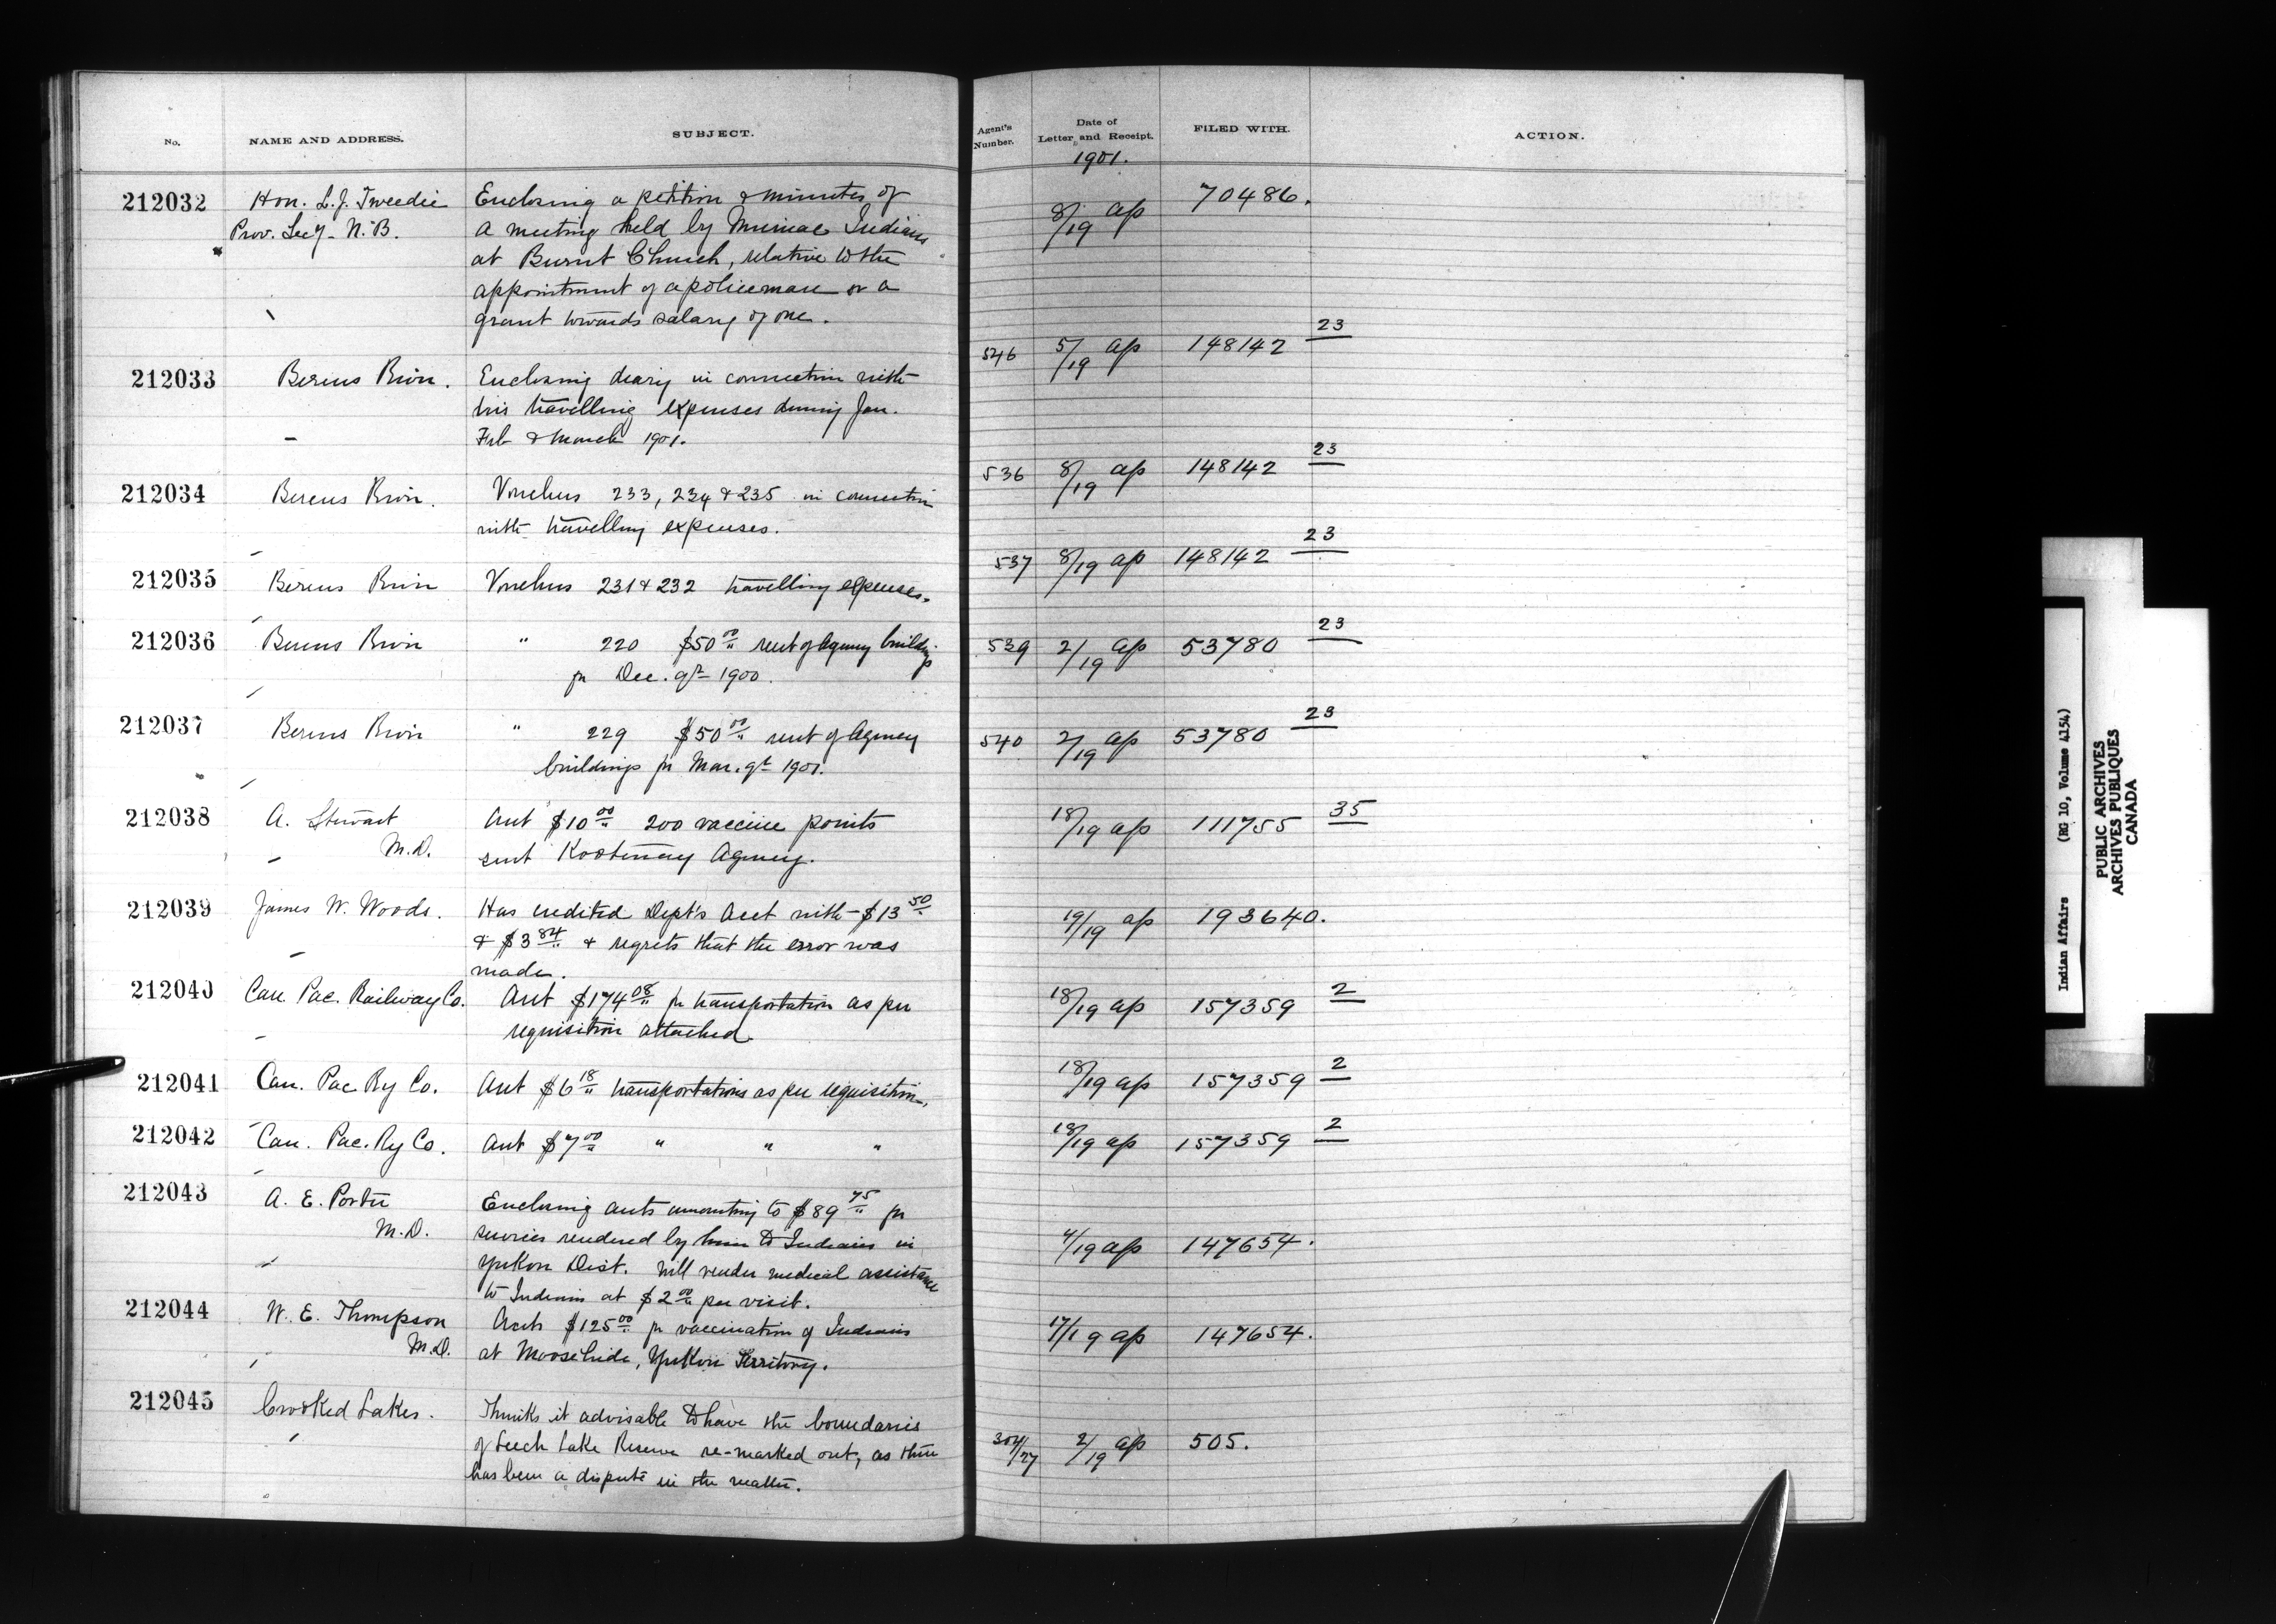 No. NAME AND ADDRESS. SUBJECT. Agent's Number. Date of Letter and Receipt. FILED WITH. ACTION.
1901.
212032 Hon. L. J. Tweedie Enclosing a petition & minutes of 8/19 ap 70486.
Prov. Secy. N.B. a meeting held by Micmac Indians
at Burnt Church, relative to the
appointment of a policeman or a
grant towards salary of one.
212033 Berens River. Enclosing diary in connection with 546 5/19 ap 148142 23
his travelling expenses during Jan.
Feb & March 1901.
212034 Berens River. Vouchers 233, 234 & 235 in connection 536 8/19 ap 148142 23
with travelling expenses.
212035 Berens River Vouchers 231 & 232 travelling expenses. 537 8/19 ap 148142 23
212036 Berens River " 220 $50 00 rent of Agency buildings 539 2/19 ap 53780 23
for Dec. qr 1900.
212037 Berens River " 229 $50 00 rent of Agency 540 2/19 ap 53780 23
buildings for Mar. qr 1901.
212038 A. Stewart Acct $10 00 200 vaccine points 18/19 ap 111755 35
M.D. sent Kootenay Agency.
212039 James W. Woods. Has credited Dept's Acct with $13 50 19/19 ap 193640.
& $3 84 & regrets that the error was
made.
212040 Can. Pac. Railway Co. Acct $174 08 for transportation as per 18/19 ap 157359 2
requisition attached.
212041 Can. Pac Ry Co. Acct $6 18 transportations as per requisition. 18/19 ap 157359 2
212042 Can. Pac. Ry Co. Acct $7 00 " " " 18/19 ap 157359 2
212043 A. E. Porter Enclosing accts amounting to $89 75 for
M.D. services rendered by him to Indians in 4/19 ap 147654.
Yukon Dist. Will render medical assistance
to Indians at $2 00 per visit.
212044 W. E. Thompson Acct $125 00 for vaccination of Indians 17/19 ap 147654.
M.D. at Moosehide, Yukon Territory.
212045 Crooked Lakes. Thinks it advisable to have the boundaries
of Leech Lake Reserve re-marked out, as there 304/27 2/19 ap 505.
has been a dispute in the matter.
Indian Affairs (RG 10, Volume 4154)
PUBLIC ARCHIVES
ARCHIVES PUBLIQUES
CANADA